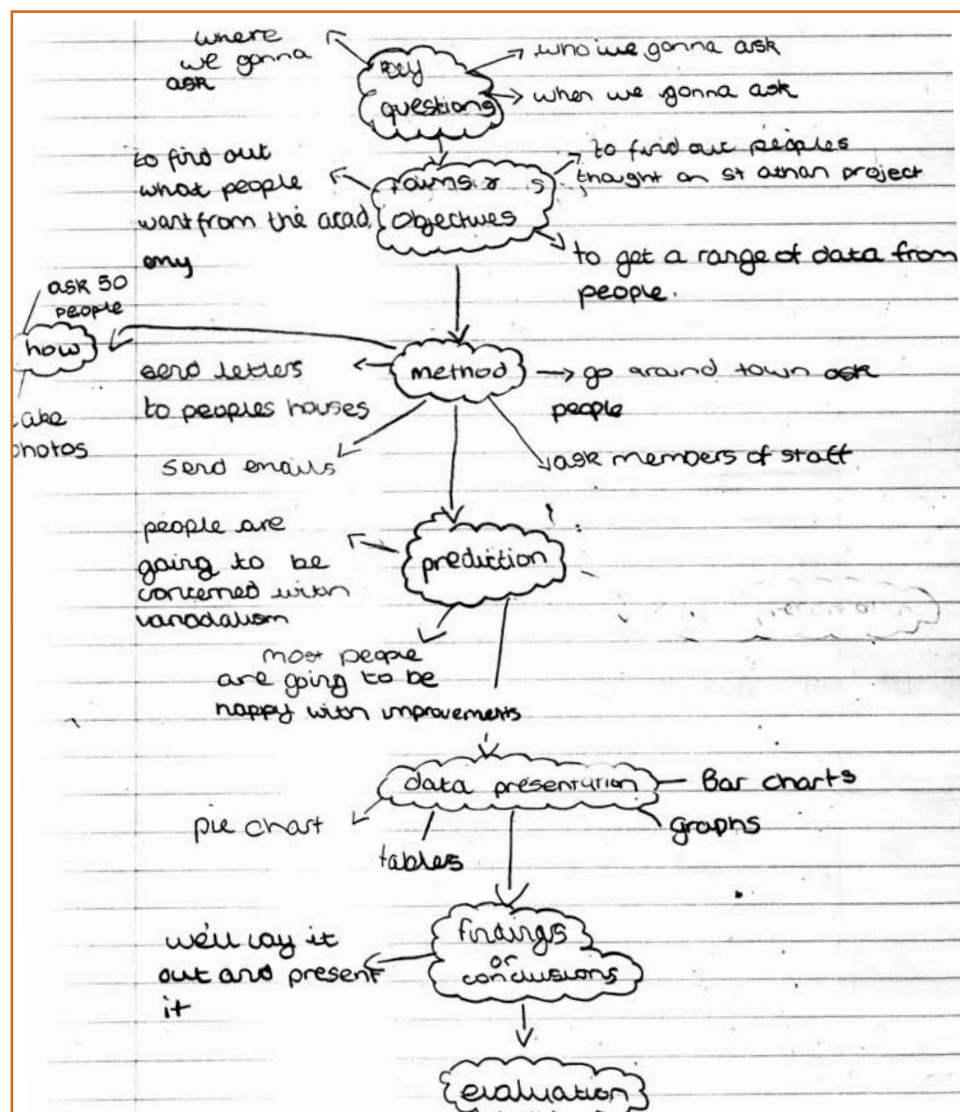 where
we gonna
ask
key
questions
who we gonna ask
when we gonna ask
to find out
what people
want from the acad
emy
objectives
to find out peoples
thought on st athan project
to get a range of data from
people.
ask 50
people
how
photos
method
send letters
to peoples houses
send emails
go around town ask
people
ask members of staff
prediction
people are
going to be
concerned with
vanadalism
most people
are going to be
happy with improvements
data presentation
Bar charts
graphs
pie chart
tables
findings
or
conclusions
we'll lay it
out and present
it
evaluation